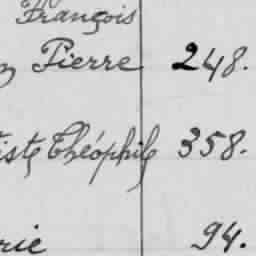 François
Pierre 248.
iste Théophile 358.
rie 94.